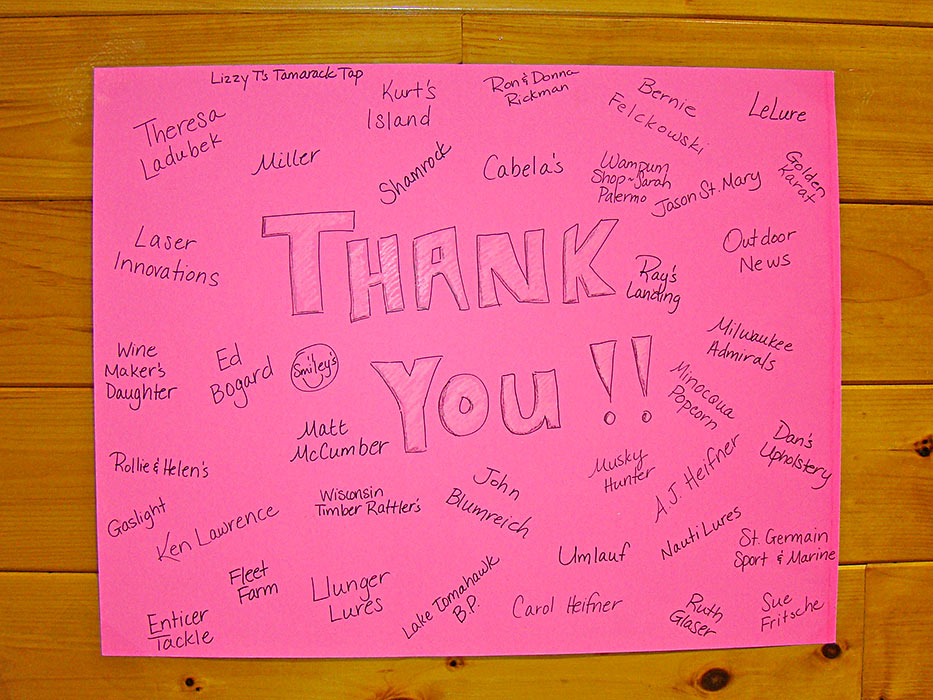 Lizzy T's Tamarack Tap
Theresa
Ladubek
Kurt's
Island
Ron & Donna
Rickman
Bernie
Felckowski
LeLure
Miller
Shamrock
Cabela's
Wampum
Shop~Sarah
Palermo
Jason St. Mary
Golden
Karat
THANK
Laser
Innovations
Ray's
Landing
Outdoor
News
Wine
Maker's
Daughter
Ed
Bogard
Smiley's
You!!
Milwaukee
Admirals
Minocqua
Popcorn
Matt
McCumber
Rollie & Helen's
Dan's
Upholstery
Gaslight
Ken Lawrence
Wisconsin
Timber Rattler's
John
Blumreich
Musky
Hunter
A.J. Heifner
Fleet
Farm
Llunger
Lures
Lake Tomahawk
B.P.
Umlauf
Nauti Lures
St. Germain
Sport & Marine
Enticer
Tackle
Carol Heifner
Ruth
Glaser
Sue
Fritsche